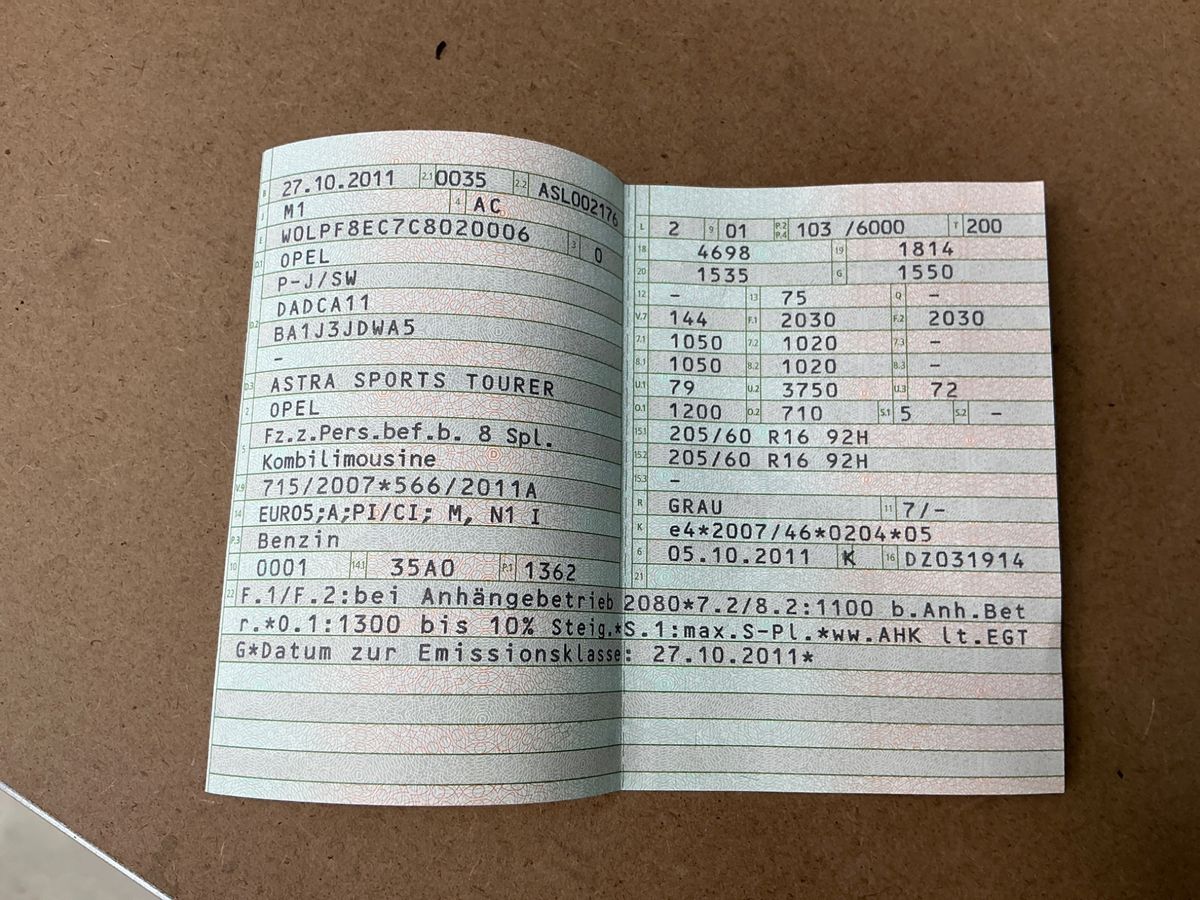 B 27.10.2011 2.1 0035 2.2 ASL002176
J M1 4 AC
E W0LPF8EC7C8020006 3 0
D.1 OPEL
P-J/SW
D.2 DADCA11
BA1J3JDWA5
-
D.3 ASTRA SPORTS TOURER
2 OPEL
5 Fz.z.Pers.bef.b. 8 Spl.
Kombilimousine
V.9 715/2007*566/2011A
14 EURO5;A;PI/CI; M, N1 I
P.3 Benzin
10 0001 14.1 35A0 P.1 1362
L 2 9 01 P.2 P.4 103 /6000 T 200
18 4698 19 1814
20 1535 G 1550
12 - 13 75 Q -
V.7 144 F.1 2030 F.2 2030
7.1 1050 7.2 1020 7.3 -
8.1 1050 8.2 1020 8.3 -
U.1 79 U.2 3750 U.3 72
O.1 1200 O.2 710 S.1 5 S.2 -
15.1 205/60 R16 92H
15.2 205/60 R16 92H
15.3 -
R GRAU 11 7/-
K e4*2007/46*0204*05
6 05.10.2011 17 K 16 DZ031914
21
22 F.1/F.2:bei Anhängebetrieb 2080*7.2/8.2:1100 b.Anh.Bet
r.*O.1:1300 bis 10% Steig.*S.1:max.S-Pl.*ww.AHK lt.EGT
G*Datum zur Emissionsklasse: 27.10.2011*